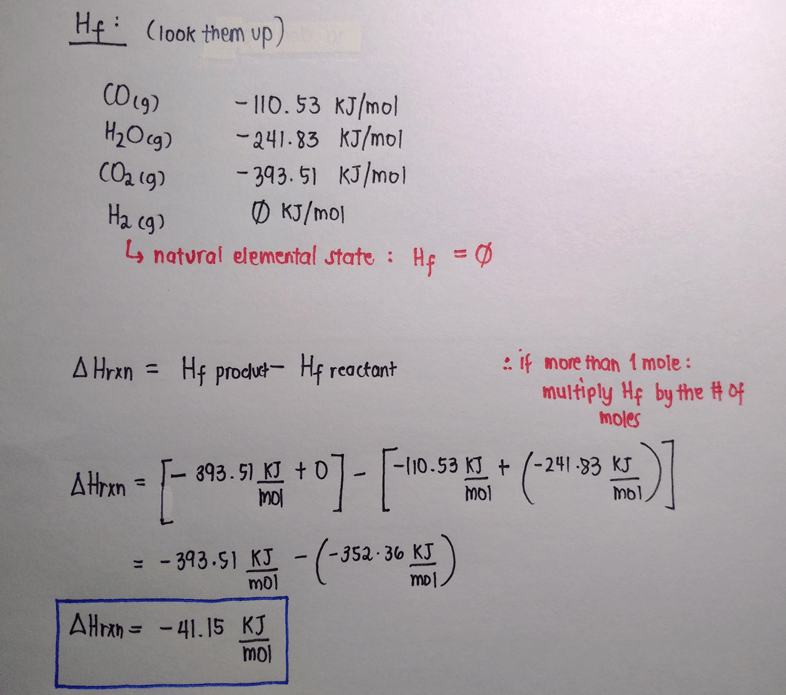 Hf : (look them up)
CO(g) -110.53 KJ/mol
H2O(g) -241.83 KJ/mol
CO2(g) -393.51 KJ/mol
H2(g) ∅ KJ/mol
↳ natural elemental state : Hf = ∅
ΔHrxn = Hf product - Hf reactant
∴ if more than 1 mole :
multiply Hf by the # of
moles
ΔHrxn = [-393.51 KJ/mol + 0] - [-110.53 KJ/mol + (-241.83 KJ/mol)]
= -393.51 KJ/mol - (-352.36 KJ/mol)
ΔHrxn = -41.15 KJ/mol